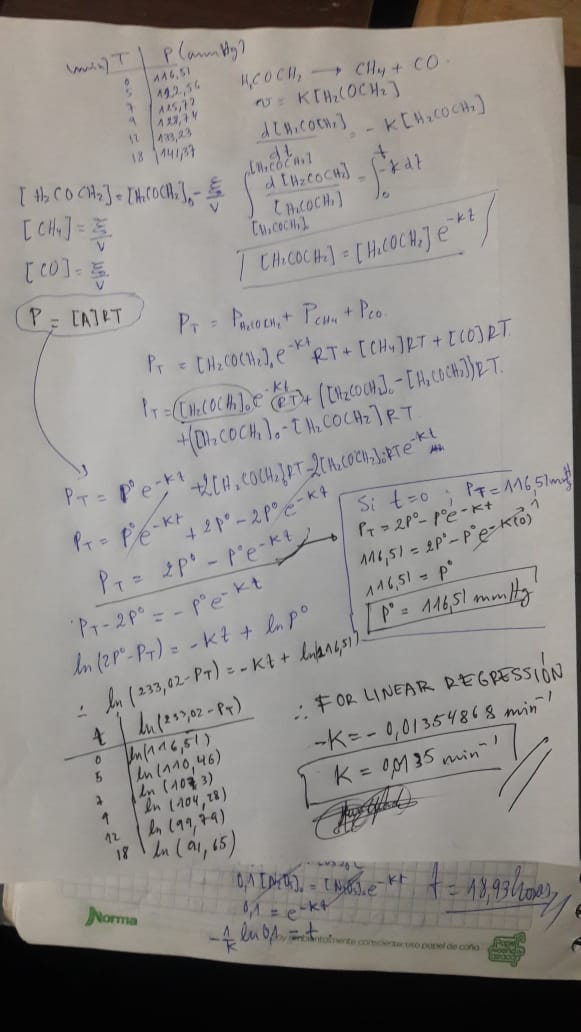 min) T | P (mmHg)
0 | 116,51
5 | 122,56
7 | 125,72
9 | 128,74
12 | 133,23
18 | 141,37
H₂COCH₂ → CH₄ + CO
v = K[H₂COCH₂]
d[H₂COCH₂]/dt = -K[H₂COCH₂]
∫ d[H₂COCH₂]/[H₂COCH₂] = ∫₀ᵗ -k dt
[H₂COCH₂] = [H₂COCH₂] e^-kt
[H₂COCH₂] = [H₂COCH₂]₀ - ξ/V
[CH₄] = ξ/V
[CO] = ξ/V
P = [A]RT
P_T = P_H₂COCH₂ + P_CH₄ + P_CO
P_T = [H₂COCH₂]₀ e^-kt RT + [CH₄]RT + [CO]RT
P_T = [H₂COCH₂]₀ e^-kt (RT) + ([H₂COCH₂]₀ - [H₂COCH₂])RT
+ ([H₂COCH₂]₀ - [H₂COCH₂]RT
P_T = P° e^-kt + 2[H₂COCH₂]₀RT - 2[H₂COCH₂]₀RT e^-kt
P_T = P° e^-kt + 2P° - 2P° e^-kt
P_T = 2P° - P° e^-kt
P_T - 2P° = - P° e^-kt
ln(2P° - P_T) = -Kt + ln P°
∴ ln(233,02 - P_T) = -Kt + ln(116,51)
Si t=0 ; P_T = 116,51 mmHg
P_T = 2P° - P° e^-kt
116,51 = 2P° - P° e^-K(0) 1
116,51 = P°
P° = 116,51 mmHg
t | ln(233,02 - P_T)
0 | ln(116,51)
5 | ln(110,46)
7 | ln(107,3)
9 | ln(104,28)
12 | ln(99,79)
18 | ln(91,65)
∴ FOR LINEAR REGRESSIÓN
-K = -0,01354868 min⁻¹
K = 0,0135 min⁻¹
e^-kt
t = 18,93 horas
0,1 = e^-kt
-1/k ln 0,1 = t
Norma
ambientalmente consciente: uso papel de caña